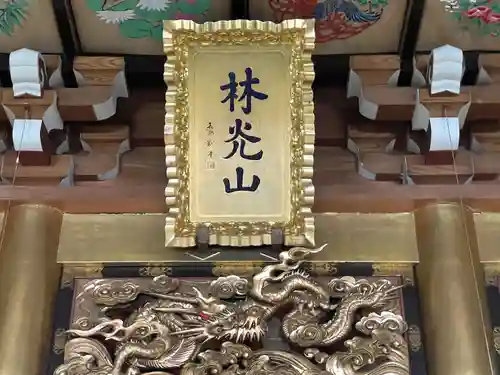 林光山